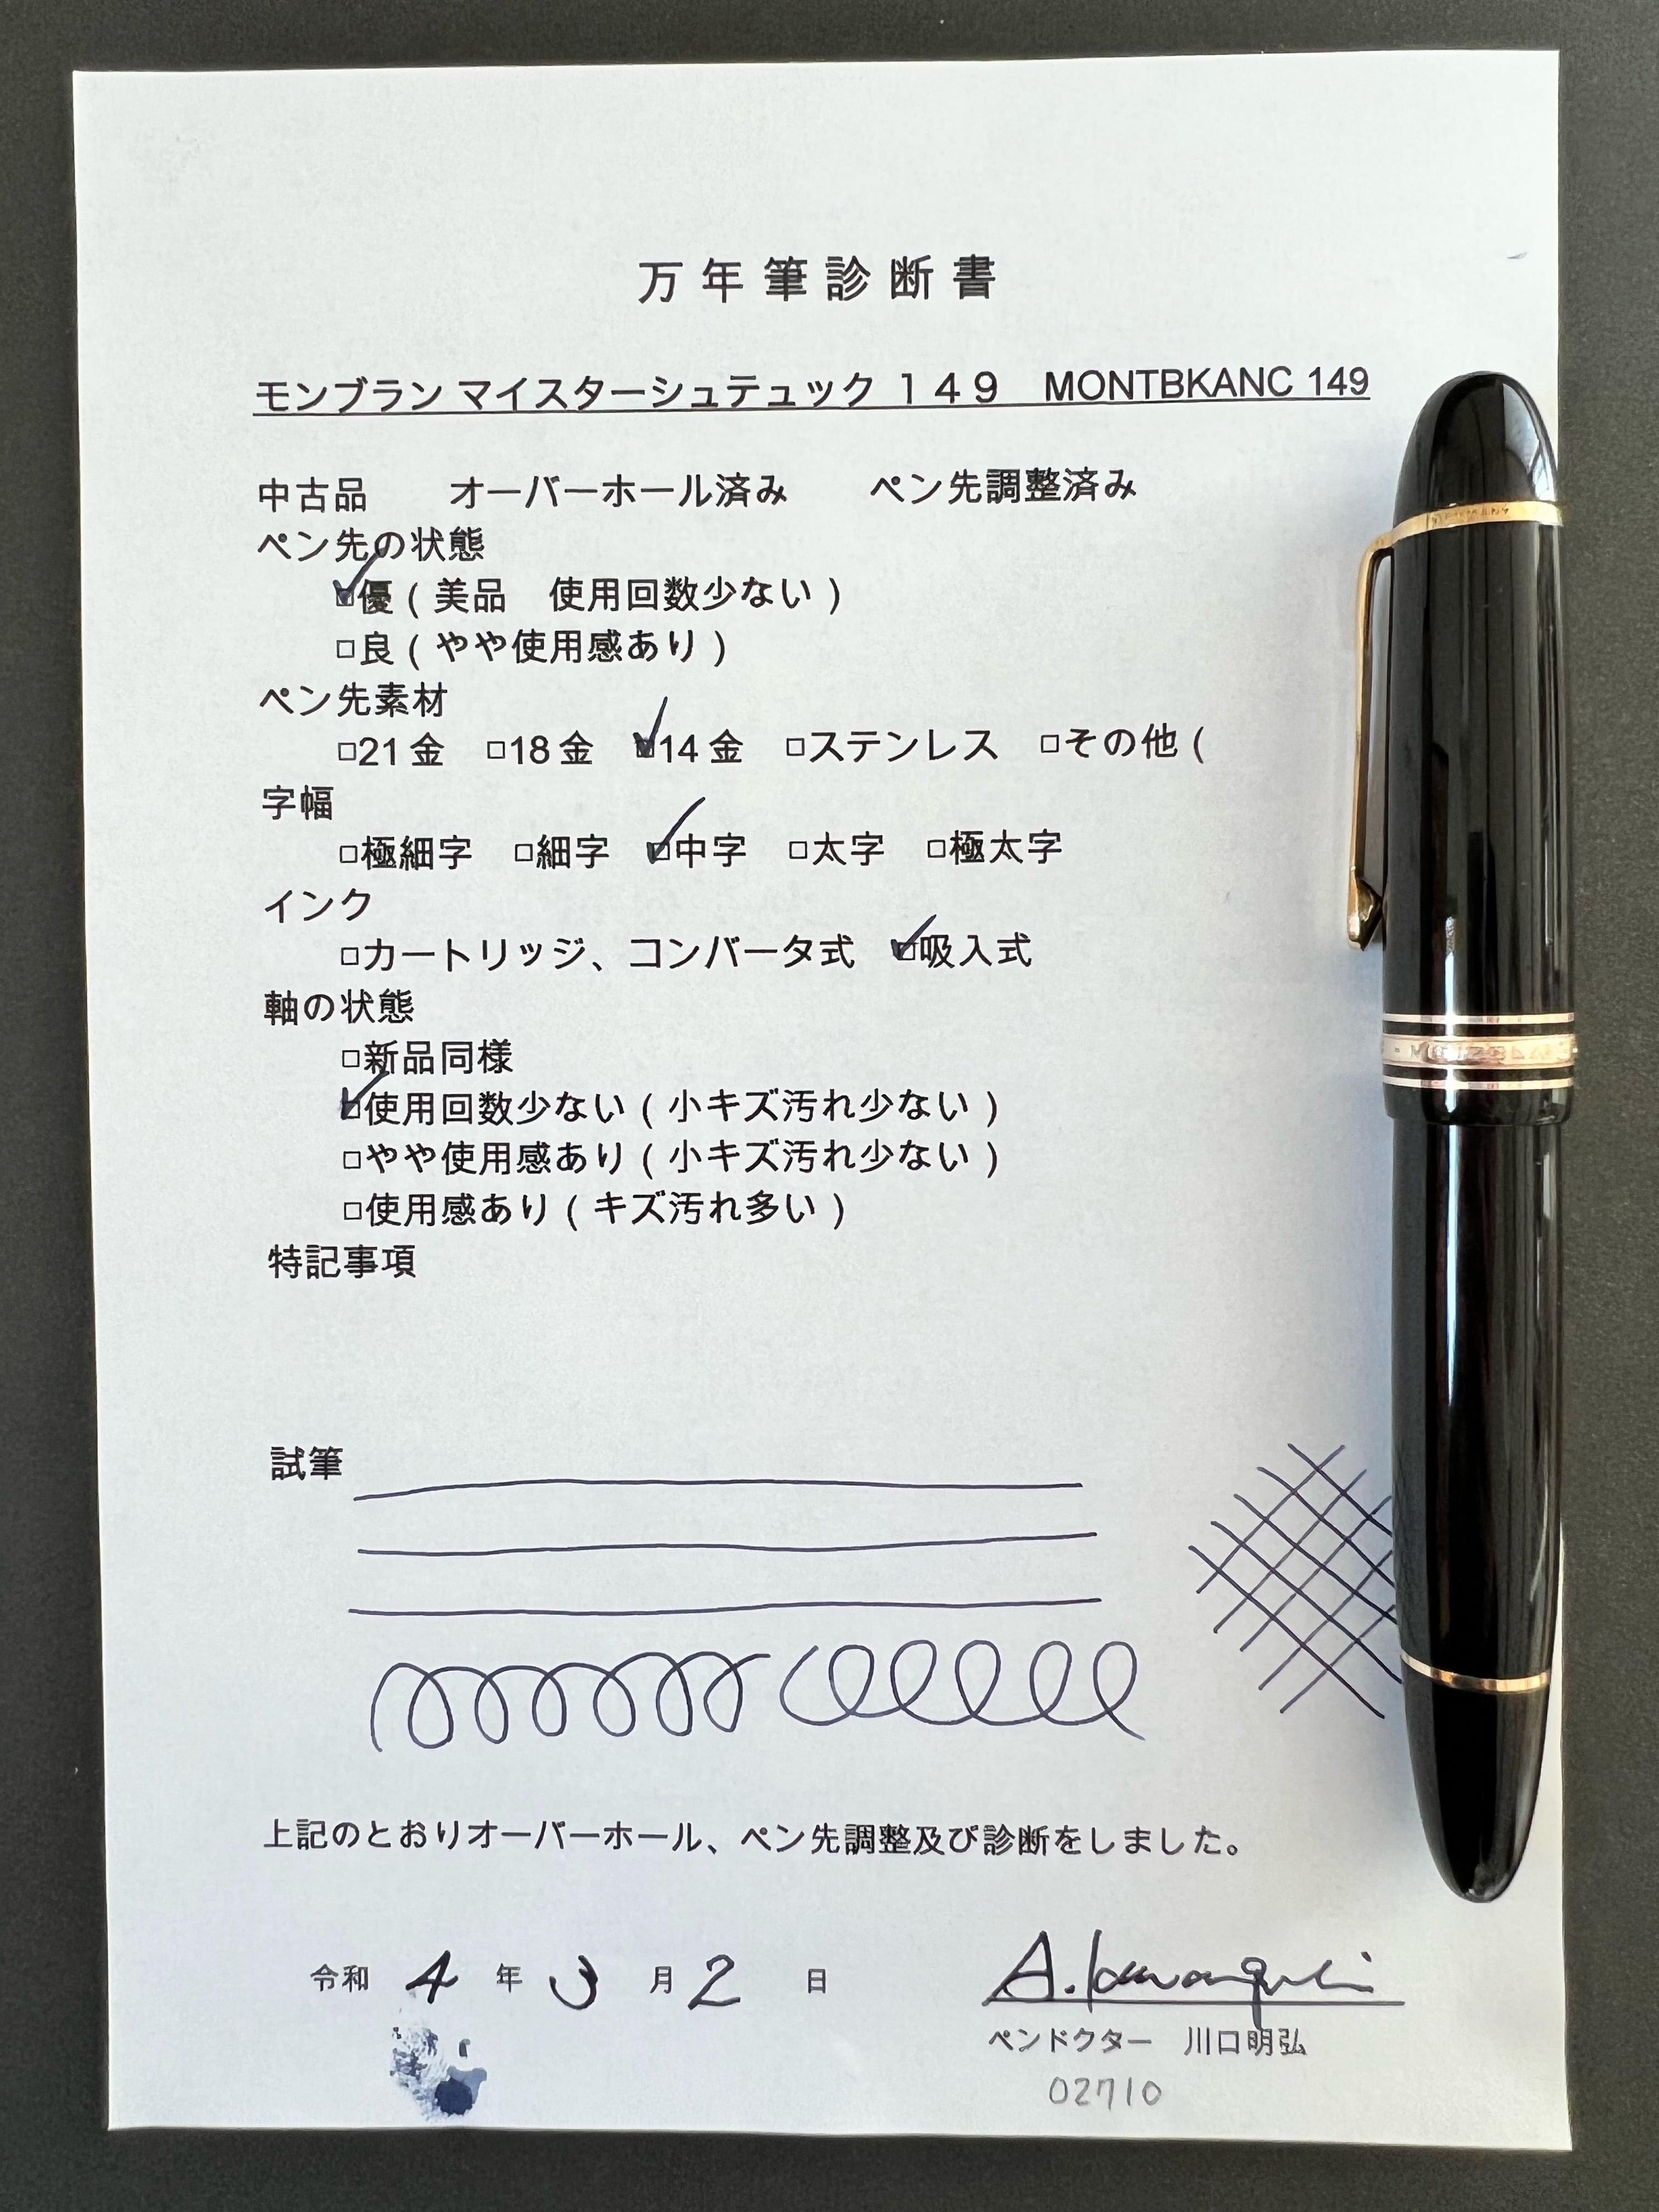 万年筆診断書
モンブラン マイスターシュテュック １４９　MONTBKANC 149
中古品　　オーバーホール済み　　ペン先調整済み
ペン先の状態
☑優（美品　使用回数少ない）
□良（やや使用感あり）
ペン先素材
□21金　□18金　☑14金　□ステンレス　□その他（
字幅
□極細字　□細字　☑中字　□太字　□極太字
インク
□カートリッジ、コンバータ式　☑吸入式
軸の状態
□新品同様
☑使用回数少ない（小キズ汚れ少ない）
□やや使用感あり（小キズ汚れ少ない）
□使用感あり（キズ汚れ多い）
特記事項
試筆
上記のとおりオーバーホール、ペン先調整及び診断をしました。
令和 4 年 3 月 2 日
A. Kawaguchi
ペンドクター　川口明弘
02710
GERMANY
- MONTBLANC -